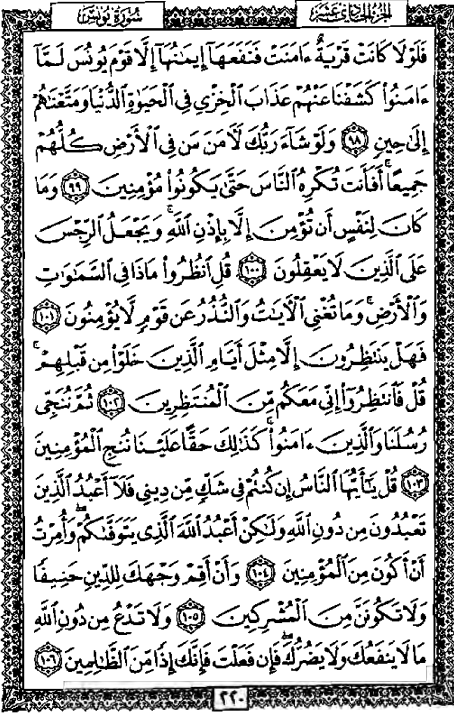 الجزء الحادي عشر
سورة يونس
فَلَوْلَا كَانَتْ قَرْيَةٌ ءَامَنَتْ فَنَفَعَهَآ إِيمَٰنُهَآ إِلَّا قَوْمَ يُونُسَ لَمَّآ
ءَامَنُوا۟ كَشَفْنَا عَنْهُمْ عَذَابَ ٱلْخِزْىِ فِى ٱلْحَيَوٰةِ ٱلدُّنْيَا وَمَتَّعْنَٰهُمْ
إِلَىٰ حِينٍ ٩٨ وَلَوْ شَآءَ رَبُّكَ لَءَامَنَ مَن فِى ٱلْأَرْضِ كُلُّهُمْ
جَمِيعًا ۚ أَفَأَنتَ تُكْرِهُ ٱلنَّاسَ حَتَّىٰ يَكُونُوا۟ مُؤْمِنِينَ ٩٩ وَمَا
كَانَ لِنَفْسٍ أَن تُؤْمِنَ إِلَّا بِإِذْنِ ٱللَّهِ ۚ وَيَجْعَلُ ٱلرِّجْسَ
عَلَى ٱلَّذِينَ لَا يَعْقِلُونَ ١٠٠ قُلِ ٱنظُرُوا۟ مَاذَا فِى ٱلسَّمَٰوَٰتِ
وَٱلْأَرْضِ ۚ وَمَا تُغْنِى ٱلْءَايَٰتُ وَٱلنُّذُرُ عَن قَوْمٍ لَّا يُؤْمِنُونَ ١٠١
فَهَلْ يَنتَظِرُونَ إِلَّا مِثْلَ أَيَّامِ ٱلَّذِينَ خَلَوْا۟ مِن قَبْلِهِمْ ۚ
قُلْ فَٱنتَظِرُوٓا۟ إِنِّى مَعَكُم مِّنَ ٱلْمُنتَظِرِينَ ١٠٢ ثُمَّ نُنَجِّى
رُسُلَنَا وَٱلَّذِينَ ءَامَنُوا۟ ۚ كَذَٰلِكَ حَقًّا عَلَيْنَا نُنجِ ٱلْمُؤْمِنِينَ
١٠٣ قُلْ يَٰٓأَيُّهَا ٱلنَّاسُ إِن كُنتُمْ فِى شَكٍّ مِّن دِينِى فَلَآ أَعْبُدُ ٱلَّذِينَ
تَعْبُدُونَ مِن دُونِ ٱللَّهِ وَلَٰكِنْ أَعْبُدُ ٱللَّهَ ٱلَّذِى يَتَوَفَّىٰكُمْ ۖ وَأُمِرْتُ
أَنْ أَكُونَ مِنَ ٱلْمُؤْمِنِينَ ١٠٤ وَأَنْ أَقِمْ وَجْهَكَ لِلدِّينِ حَنِيفًا
وَلَا تَكُونَنَّ مِنَ ٱلْمُشْرِكِينَ ١٠٥ وَلَا تَدْعُ مِن دُونِ ٱللَّهِ
مَا لَا يَنفَعُكَ وَلَا يَضُرُّكَ ۖ فَإِن فَعَلْتَ فَإِنَّكَ إِذًا مِّنَ ٱلظَّٰلِمِينَ ١٠٦
٢٢٠